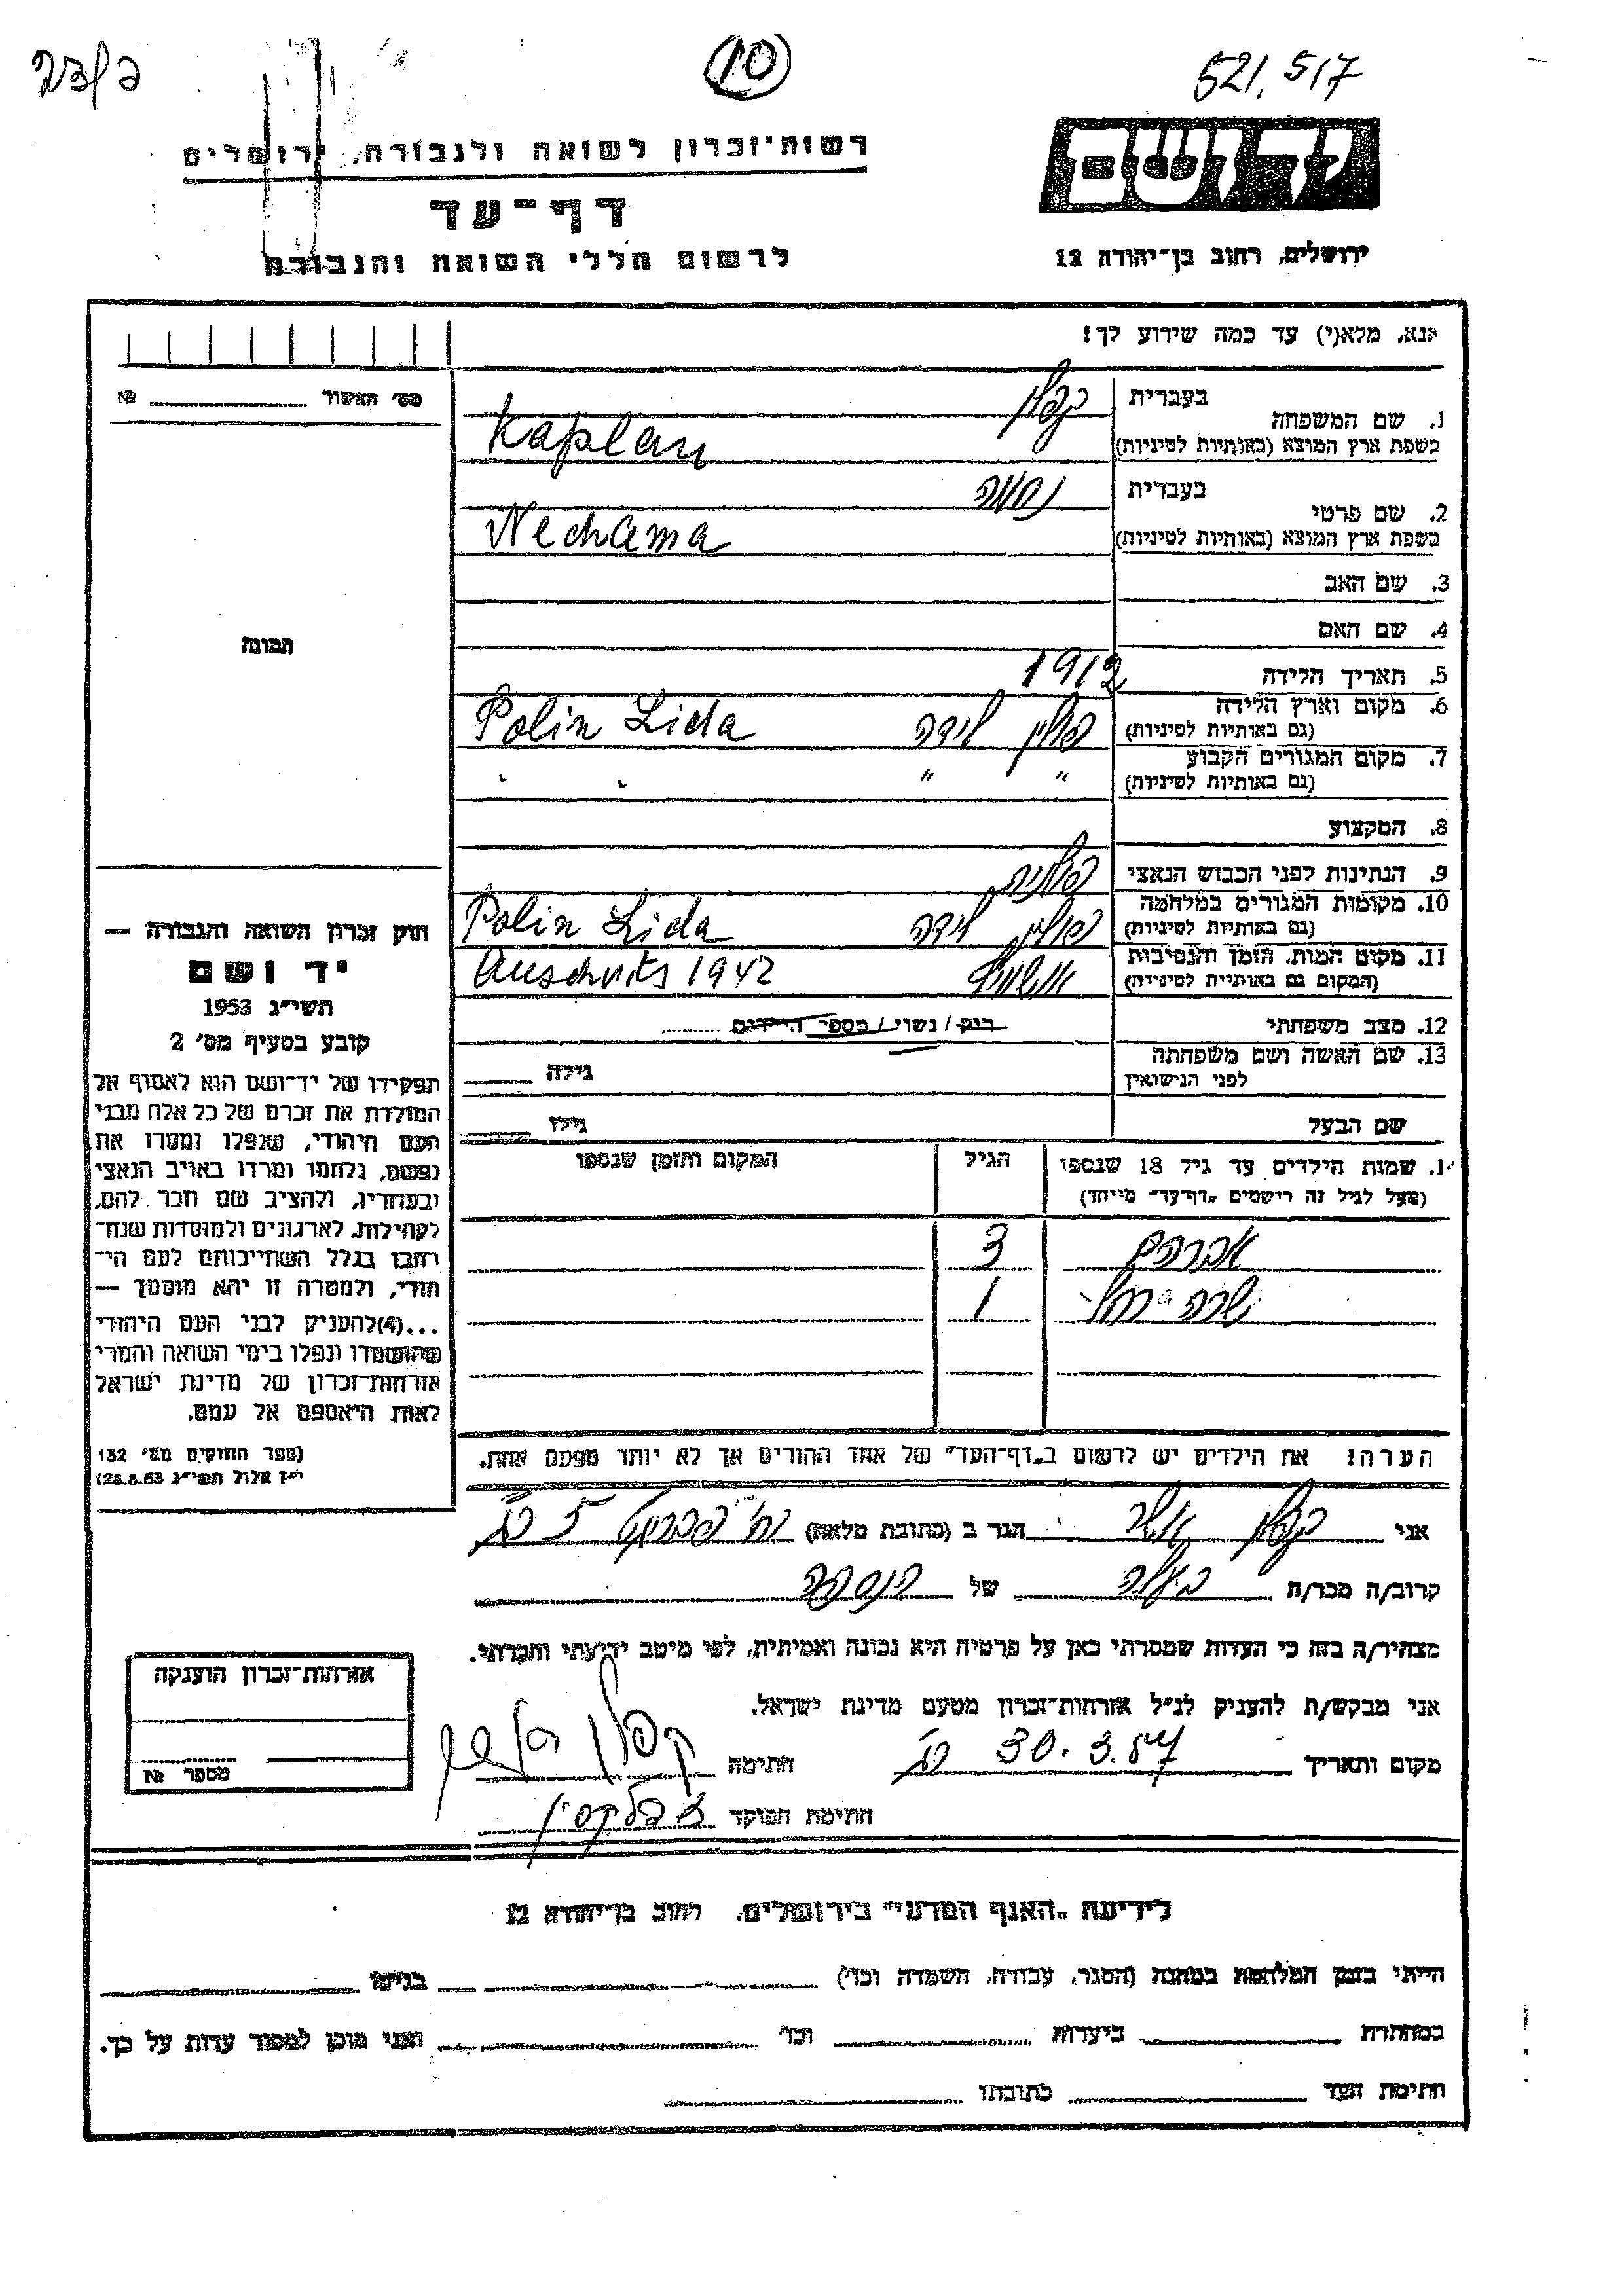 521.517
10
ידושם
ירושלים, רחוב בן־יהודה 12
רשות־זכרון לשואה ולגבורה, ירושלים
דף־עד
לרשום חללי השואה והגבורה
אנא, מלא(י) עד כמה שידוע לך!
מס׳ האשור № 
1. שם המשפחה
בעברית קפלן
בשפת ארץ המוצא (באותיות לטיניות) Kaplan
2. שם פרטי
בעברית נחמה
בשפת ארץ המוצא (באותיות לטיניות) Nechama
3. שם האב
4. שם האם
5. תאריך הלידה 1912
6. מקום וארץ הלידה (גם באותיות לטיניות) פולין לידה Polin Lida
7. מקום המגורים הקבוע (גם באותיות לטיניות) " "
8. המקצוע
9. הנתינות לפני הכבוש הנאצי פולנית
10. מקומות המגורים במלחמה (גם באותיות לטיניות) פולין לידה Polin Lida
11. מקום המות, הזמן והנסיבות (המקום גם באותיות לטיניות) Auschvits 1942
12. מצב משפחתי רווק / נשוי / מספר הילדים
13. שם האשה ושם משפחתה לפני הנישואין גילה
שם הבעל גילו
14. שמות הילדים עד גיל 18 שנספו
(מעל לגיל זה רישמים „דף־עד” מייחד)
הגיל
המקום והזמן שנספו
אברהם 3
שרה־רחל 1
הערה! את הילדים יש לרשום ב„דף־העד” של אחד ההורים אך לא יותר מפעם אחת.
אני קפלן אשר הגר ב (כתובת מלאה) רח׳ 5
קרוב/ה מכר/ה בעלה של הנספה
מצהיר/ה בזה כי העדות שמסרתי כאן על פרטיה היא נכונה ואמיתית, לפי מיטב ידיעתי והכרתי.
אני מבקש/ת להעניק לנ״ל אזרחות־זכרון מטעם מדינת ישראל.
מקום ותאריך 30.3.57 חתימה קפלן
חתימת הפוקד
תמונה
חוק זכרון השואה והגבורה —
יד ושם
תשי״ג 1953
קובע בסעיף מס׳ 2
תפקידו של יד־ושם הוא לאסוף אל
המולדת את זכרם של כל אלה מבני
העם היהודי, שנפלו ומסרו את
נפשם, נלחמו ומרדו באויב הנאצי
ובעוזריו, ולהציב שם וזכר להם,
לקהילות, לארגונים ולמוסדות שנח־
רבו בגלל השתייכותם לעם הי־
הודי, ולמטרה זו יהא מוסמך —
...(4)להעניק לבני העם היהודי
שהושמדו ונפלו בימי השואה והמרי
אזרחות־זכרון של מדינת ישראל
לאות היאספם אל עמם.
(ספר החוקים מס׳ 132
י״ז אלול תשי״ג 28.8.53)
אזרחות־זכרון הוענקה
מספר №
לידיעת „האגף המדעי” בירושלים, רחוב בן־יהודה 12
הייתי בזמן המלחמה במחנה (הסגר, עבודה, השמדה וכד׳) בגיטו
במחתרת ביערות וכד׳ ואני מוכן למסור עדות על כך.
חתימת העד כתובתו